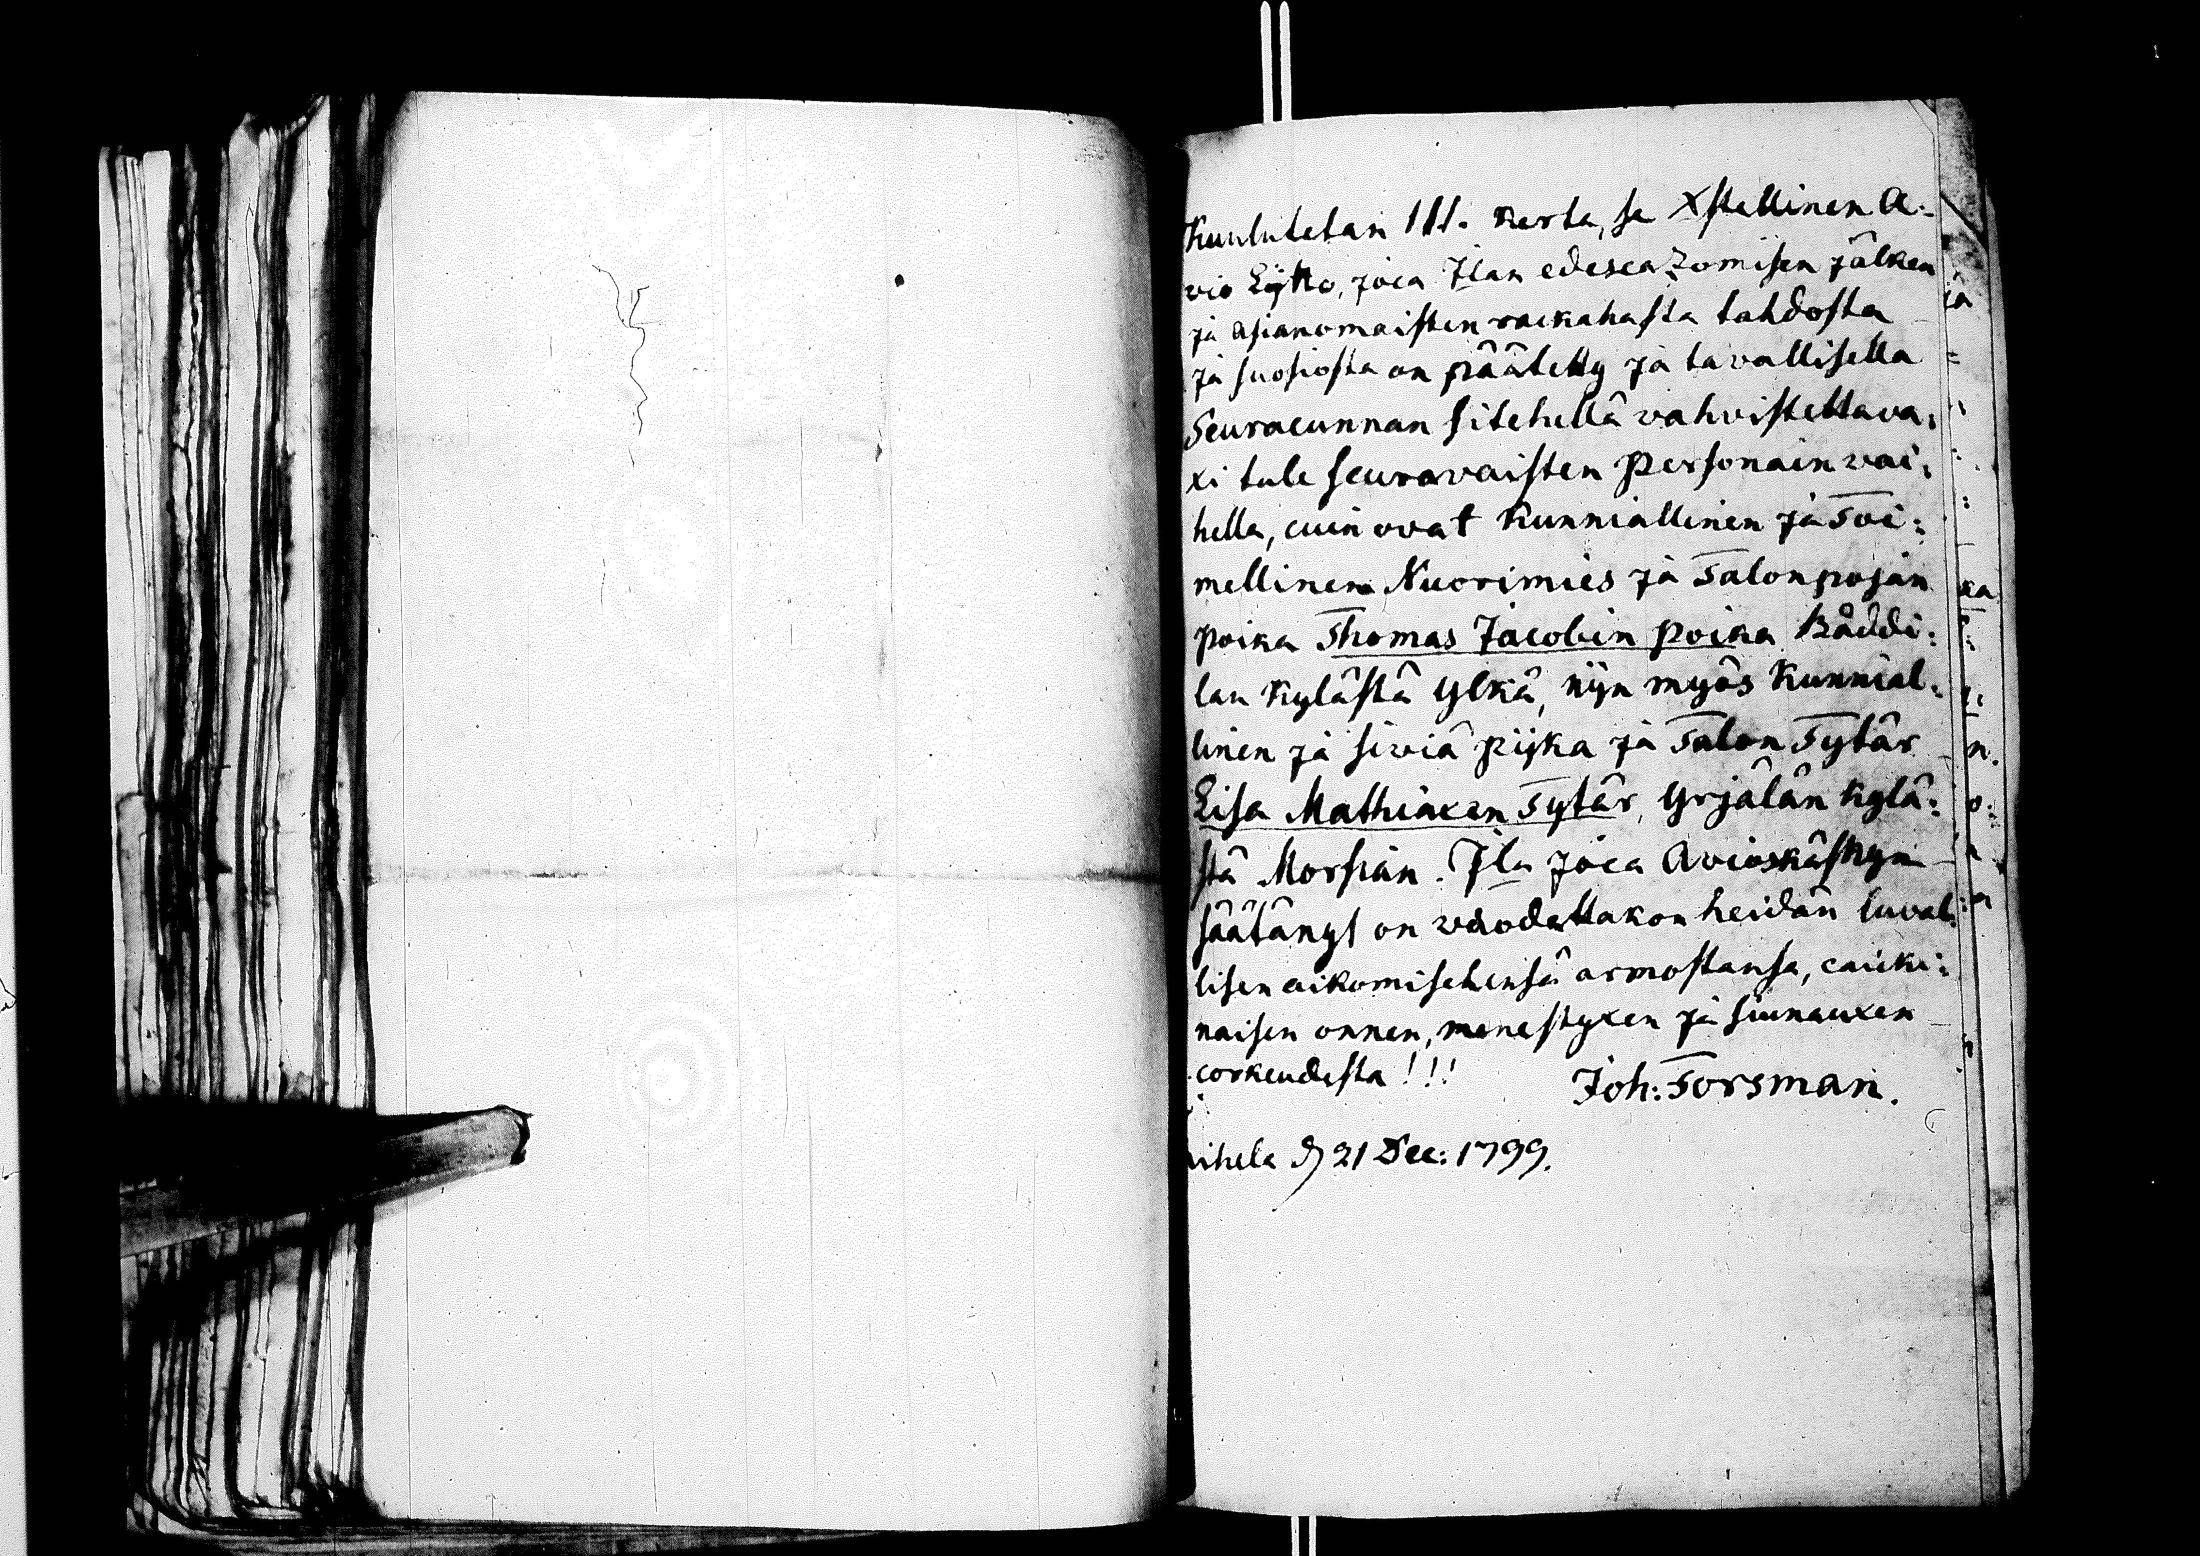 Kuulutetan III. kerta, se Xstellinen A:
vio Lijtto, joca Jlan edesca2omisen jälken
ja asianomaisten rackahasta tahdosta
ja suosiosta on päätetty ja tavallisella
Seuracunnan sitehellä vahvistettava:
xi tule seuravaisten Personain vai:
hella, cuin ovat Kunniallinen ja Toi:
mellinen Nuorimies ja Talonpojan
poika Thomas Jacobin poika Räddi:
lan Kylästä Ylkä, nijn myös Kunnial:
linen ja siviä pijka ja Talon Tytär
Lisa Mathiaxen Tytär, Yrjälän kylä:
stä Morsian. Jla joca Avioskäskyn
säätänyt on vuodattakon heidän luval:
lisen aikomisehensä armostansa, caicki:
naisen onnen, menestyxen ja siunauxen
corkeudesta!!!
Joh: Forsman.
d 21 Dec: 1799.